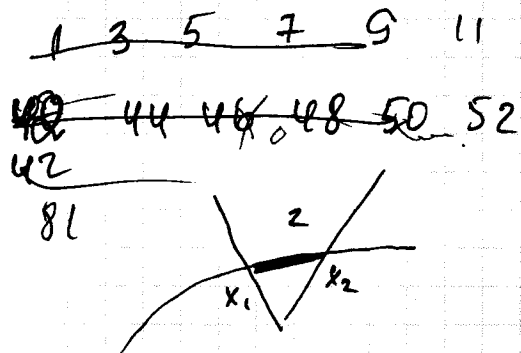 1 3 5 7 9 11
44 46 48 50 52
42
81
2
x₁ x₂